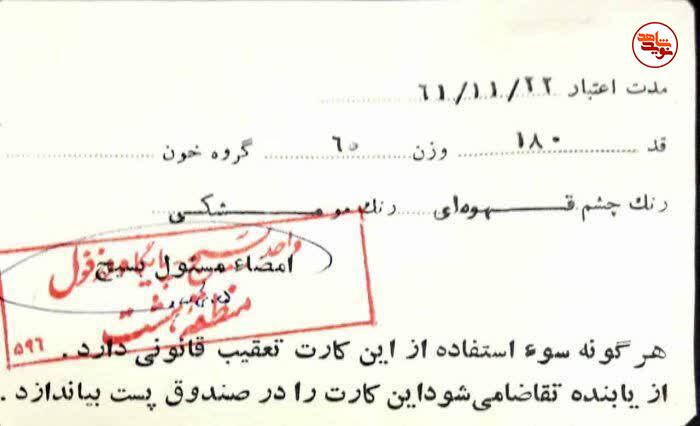 نوید شاهد
مدت اعتبار ۶۱/۱۱/۲۲
قد ۱۸۰ وزن ۶۵ گروه خون
رنگ چشم قهوه‌ای رنگ مو مشکی
امضاء مسئول بسیج
واحد بسیج پایگاه دزفول
منطقه هشت
۵۹۶
هر گونه سوء استفاده از این کارت تعقیب قانونی دارد.
از یابنده تقاضا می‌شود این کارت را در صندوق پست بیاندازد.